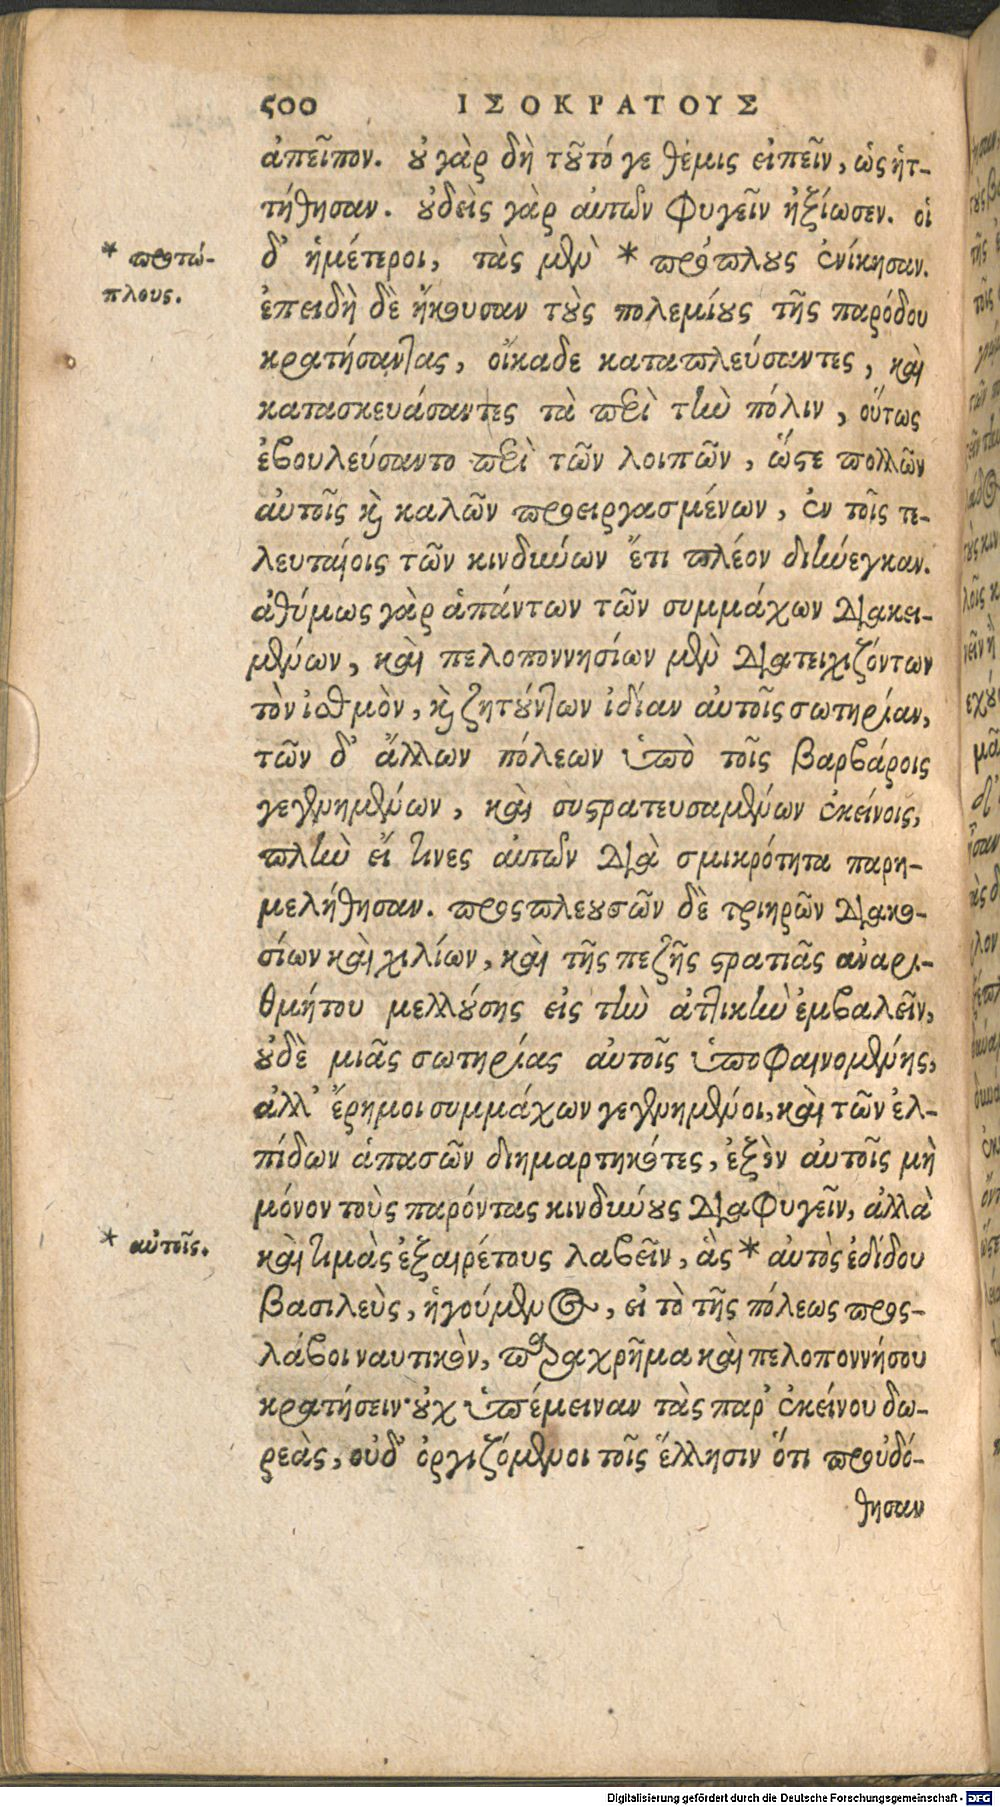 500 ΙΣΟΚΡΑΤΟΥΣ
ἀπεῖπον. οὐ γὰρ δὴ τοῦτό γε θέμις εἰπεῖν, ὡς ἡτ-
τήθησαν. οὐδεὶς γὰρ αὐτῶν φυγεῖν ἠξίωσεν. οἱ
δ᾽ ἡμέτεροι, τὰς μὲν * πρόπλους ἐνίκησαν.
* πρωτό-
πλους.
ἐπειδὴ δὲ ἤκουσαν τοὺς πολεμίους τῆς παρόδου
κρατήσαντας, οἴκαδε καταπλεύσαντες, καὶ
κατασκευάσαντες τὰ περὶ τὴν πόλιν, οὕτως
ἐβουλεύσαντο περὶ τῶν λοιπῶν, ὥστε πολλῶν
αὐτοῖς καὶ καλῶν προειργασμένων, ἐν τοῖς τε-
λευταίοις τῶν κινδύνων ἔτι πλέον διήνεγκαν.
ἀθύμως γὰρ ἁπάντων τῶν συμμάχων διακει-
μένων, καὶ πελοποννησίων μὲν διατειχιζόντων
τὸν ἰσθμὸν, καὶ ζητούντων ἰδίαν αὐτοῖς σωτηρίαν,
τῶν δ᾽ ἄλλων πόλεων ὑπὸ τοῖς βαρβάροις
γεγενημένων, καὶ συστρατευσαμένων ἐκείνοις,
πλὴν εἴ τινες αὐτῶν διὰ σμικρότητα παρη-
μελήθησαν. προσπλευσῶν δὲ τριηρῶν διακο-
σίων καὶ χιλίων, καὶ τῆς πεζῆς στρατιᾶς ἀναρι-
θμήτου μελλούσης εἰς τὴν ἀττικὴν ἐμβαλεῖν,
οὐδὲ μιᾶς σωτηρίας αὐτοῖς ὑποφαινομένης,
ἀλλ᾽ ἔρημοι συμμάχων γεγενημένοι, καὶ τῶν ἐλ-
πίδων ἁπασῶν διημαρτηκότες, ἐξὸν αὐτοῖς μὴ
μόνον τοὺς παρόντας κινδύνους διαφυγεῖν, ἀλλὰ
καὶ τιμὰς ἐξαιρέτους λαβεῖν, ἃς * αὐτὸς ἐδίδου
* αὐτοῖς.
βασιλεὺς, ἡγούμενος, εἰ τὸ τῆς πόλεως προσ-
λάβοι ναυτικὸν, παραχρῆμα καὶ πελοποννήσου
κρατήσειν· οὐχ ὑπέμειναν τὰς παρ᾽ ἐκείνου δω-
ρεὰς, οὐδ᾽ ὀργιζόμενοι τοῖς ἕλλησιν ὅτι προὐδό-
θησαν
Digitalisierung gefördert durch die Deutsche Forschungsgemeinschaft - DFG